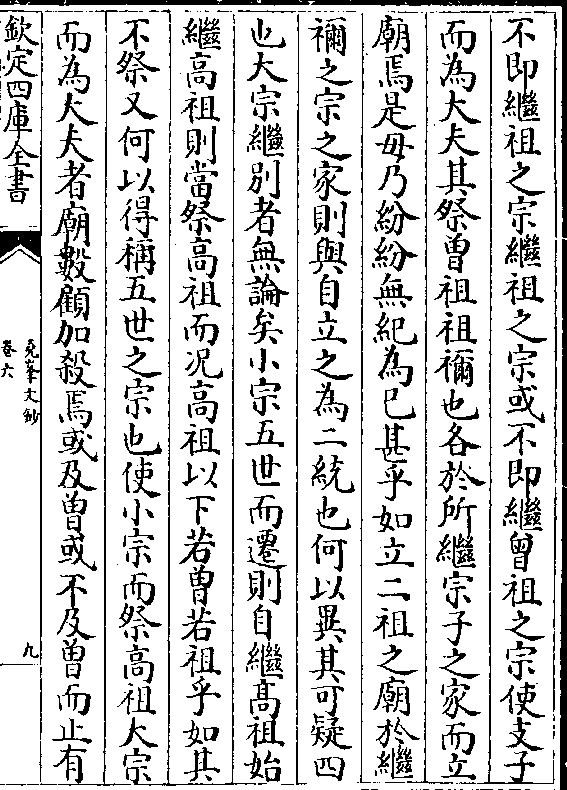 不即繼祖之宗繼祖之宗或不即繼曾祖之宗使支子
而為大夫其祭曾祖祖禰也各於所繼宗子之家而立
廟焉是毋乃紛紛無紀為已甚乎如立二祖之廟於繼
禰之宗之家則與自立之為二統也何以異其可疑四
也大宗繼別者無論矣小宗五世而遷則自繼髙祖始
繼高祖則當祭高祖而况高祖以下若曽若祖乎如其
不祭又何以得稱五世之宗也使小宗而祭高祖大宗
而為大夫者廟數顧加殺焉或及曽或不及曽而止有
欽定四庫全書
堯峯文鈔
卷六
九